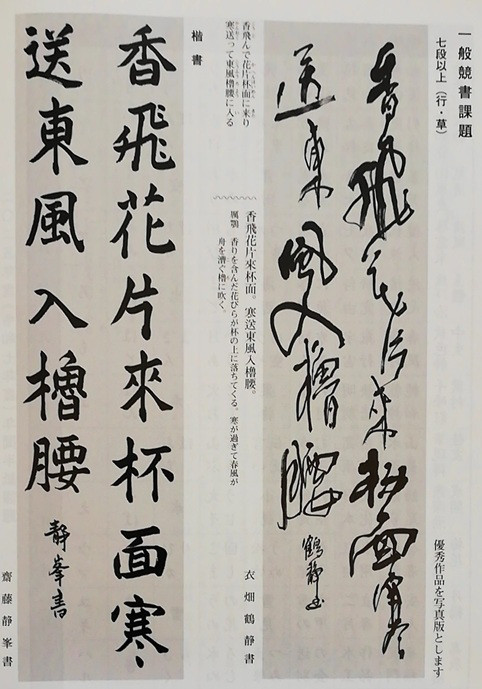 一般競書課題
七段以上（行・草）
優秀作品を写真版とします
香飛花片来杯面寒
送東風入櫓腰 鶴静書
衣畑鶴静書
香飛花片來杯面。寒送東風入櫓腰。
厲鶚 香りを含んだ花びらが杯の上に落ちてくる。寒が過ぎて春風が
舟を漕ぐ櫓に吹く。
香飛んで花片杯面に来り
寒送って東風櫓腰に入る
楷書
香飛花片來杯面寒
送東風入櫓腰 静峯書
齋藤静峯書